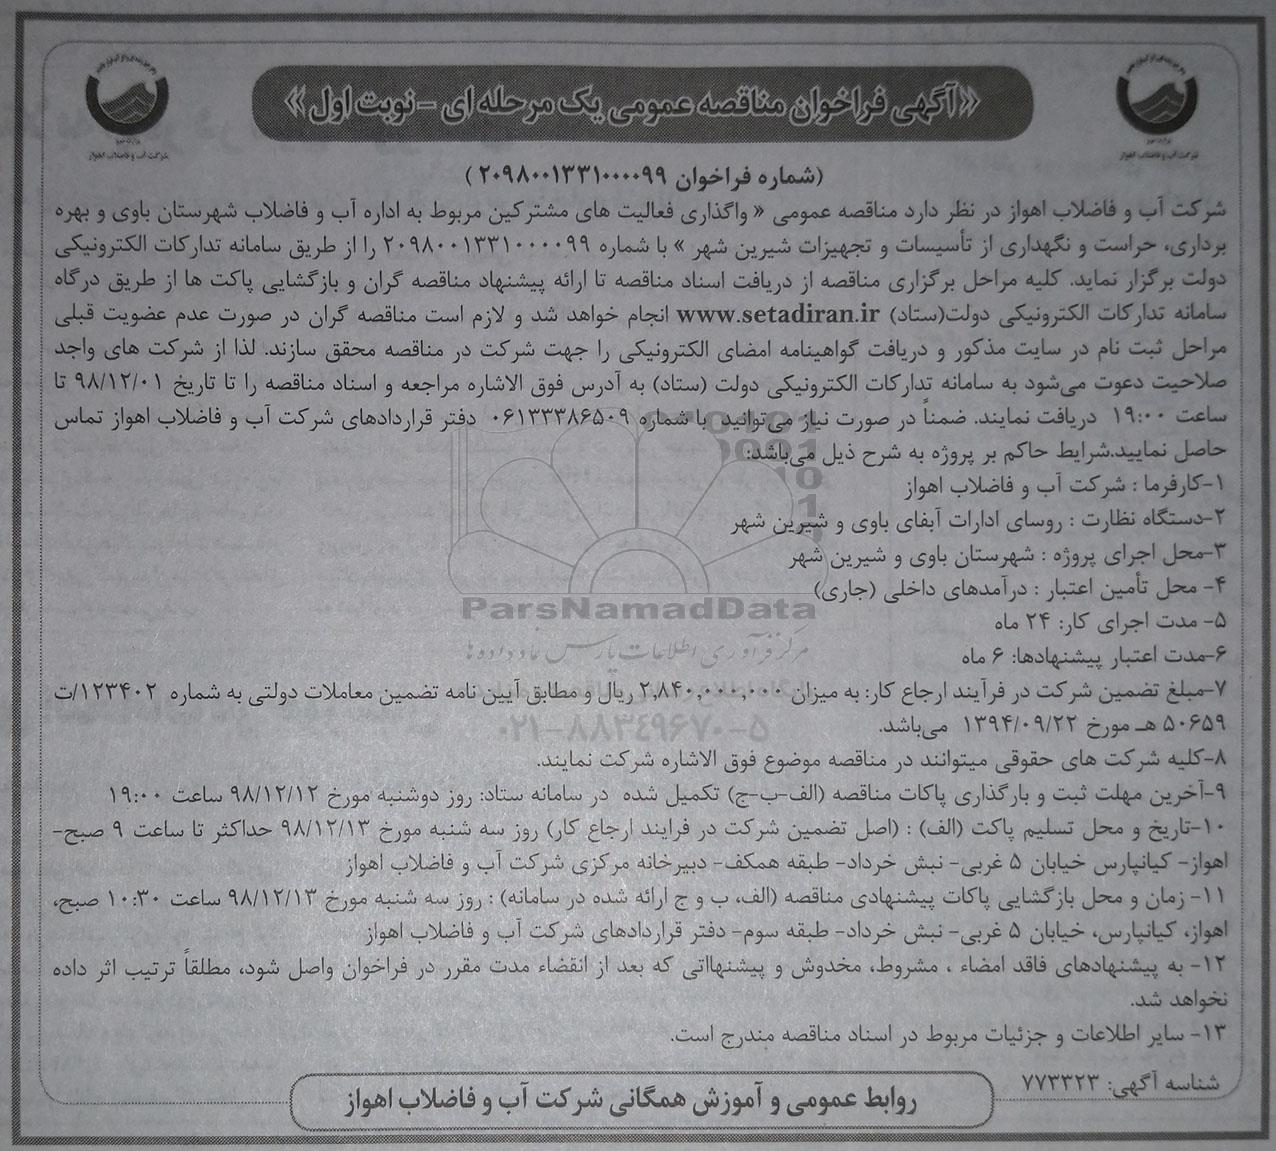 «آگهی فراخوان مناقصه عمومی یک مرحله ای – نوبت اول»
شرکت آب و فاضلاب اهواز
شرکت آب و فاضلاب اهواز
(شماره فراخوان ۲۰۹۸۰۰۱۳۳۱۰۰۰۰۹۹ )
شرکت آب و فاضلاب اهواز در نظر دارد مناقصه عمومی « واگذاری فعالیت های مشترکین مربوط به اداره آب و فاضلاب شهرستان باوی و بهره
برداری، حراست و نگهداری از تأسیسات و تجهیزات شیرین شهر » با شماره ۲۰۹۸۰۰۱۳۳۱۰۰۰۰۹۹ را از طریق سامانه تدارکات الکترونیکی
دولت برگزار نماید. کلیه مراحل برگزاری مناقصه از دریافت اسناد مناقصه تا ارائه پیشنهاد مناقصه گران و بازگشایی پاکت ها از طریق درگاه
سامانه تدارکات الکترونیکی دولت(ستاد) www.setadiran.ir انجام خواهد شد و لازم است مناقصه گران در صورت عدم عضویت قبلی
مراحل ثبت نام در سایت مذکور و دریافت گواهینامه امضای الکترونیکی را جهت شرکت در مناقصه محقق سازند. لذا از شرکت های واجد
صلاحیت دعوت می‌شود به سامانه تدارکات الکترونیکی دولت (ستاد) به آدرس فوق الاشاره مراجعه و اسناد مناقصه را تا تاریخ ۹۸/۱۲/۰۱ تا
ساعت ۱۹:۰۰ دریافت نمایند. ضمناً در صورت نیاز می‌توانید با شماره ۰۶۱۳۳۳۸۶۵۰۹ دفتر قراردادهای شرکت آب و فاضلاب اهواز تماس
حاصل نمایید.شرایط حاکم بر پروژه به شرح ذیل می‌باشد:
۱-کارفرما : شرکت آب و فاضلاب اهواز
۲-دستگاه نظارت : روسای ادارات آبفای باوی و شیرین شهر
۳-محل اجرای پروژه : شهرستان باوی و شیرین شهر
۴- محل تأمین اعتبار : درآمدهای داخلی (جاری)
ParsNamadData
۵- مدت اجرای کار: ۲۴ ماه
مرکز فرآوری اطلاعات پارس نماد داده ها
۶-مدت اعتبار پیشنهادها: ۶ ماه
۷-مبلغ تضمین شرکت در فرآیند ارجاع کار: به میزان ۲,۸۴۰,۰۰۰,۰۰۰ ریال و مطابق آیین نامه تضمین معاملات دولتی به شماره ۱۲۳۴۰۲/ت
۵۰۶۵۹ هـ مورخ ۱۳۹۴/۰۹/۲۲ می‌باشد.
۰۲۱-۸۸۳۴۹۶۷۰-۵
۸-کلیه شرکت های حقوقی میتوانند در مناقصه موضوع فوق الاشاره شرکت نمایند.
۹-آخرین مهلت ثبت و بارگذاری پاکات مناقصه (الف-ب-ج) تکمیل شده در سامانه ستاد: روز دوشنبه مورخ ۹۸/۱۲/۱۲ ساعت ۱۹:۰۰
۱۰-تاریخ و محل تسلیم پاکت (الف) : (اصل تضمین شرکت در فرایند ارجاع کار) روز سه شنبه مورخ ۹۸/۱۲/۱۳ حداکثر تا ساعت ۹ صبح-
اهواز- کیانپارس خیابان ۵ غربی- نبش خرداد- طبقه همکف- دبیرخانه مرکزی شرکت آب و فاضلاب اهواز
۱۱- زمان و محل بازگشایی پاکات پیشنهادی مناقصه (الف، ب و ج ارائه شده در سامانه) : روز سه شنبه مورخ ۹۸/۱۲/۱۳ ساعت ۱۰:۳۰ صبح،
اهواز، کیانپارس، خیابان ۵ غربی- نبش خرداد- طبقه سوم- دفتر قراردادهای شرکت آب و فاضلاب اهواز
۱۲- به پیشنهادهای فاقد امضاء ، مشروط، مخدوش و پیشنهااتی که بعد از انقضاء مدت مقرر در فراخوان واصل شود، مطلقاً ترتیب اثر داده
نخواهد شد.
۱۳- سایر اطلاعات و جزئیات مربوط در اسناد مناقصه مندرج است.
شناسه آگهی: ۷۷۳۳۲۳
روابط عمومی و آموزش همگانی شرکت آب و فاضلاب اهواز